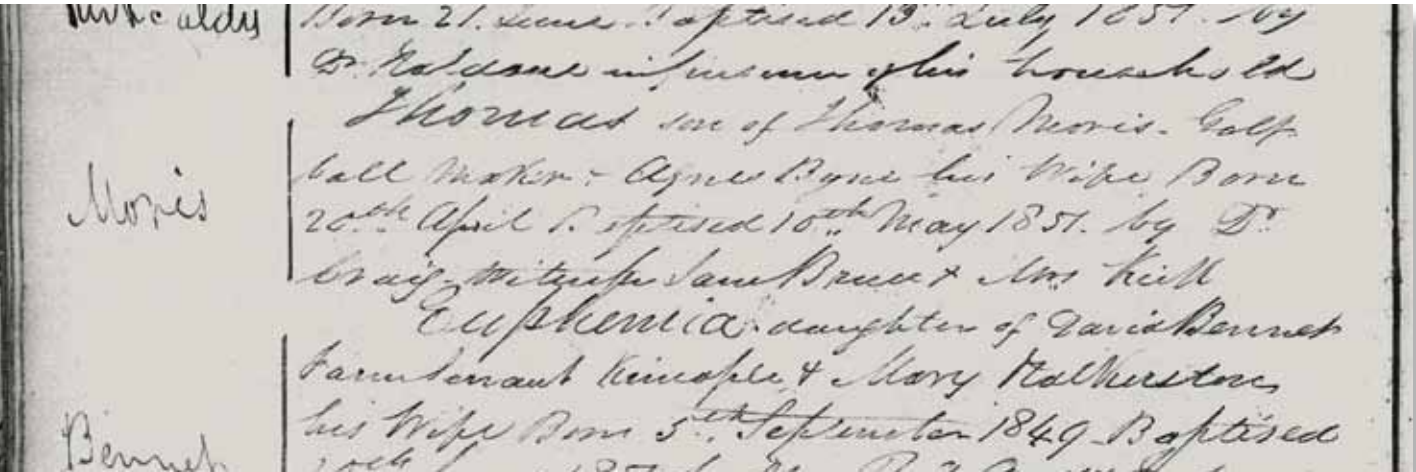 Born 21. June Baptised 13th July 1851. by
Dr. Haldane in presence of his household
Moris
Thomas son of Thomas Moris. Golf
ball Maker & Agnes Byne his Wife Born
20th April Baptised 10th May 1851. by Dr
Craig Witness Jane Bruce & Mrs Keill
Euphemia daughter of David Bennet
Farm Servant Kincaple & Mary
his Wife Born 5th September 1849 Baptised
Bennet